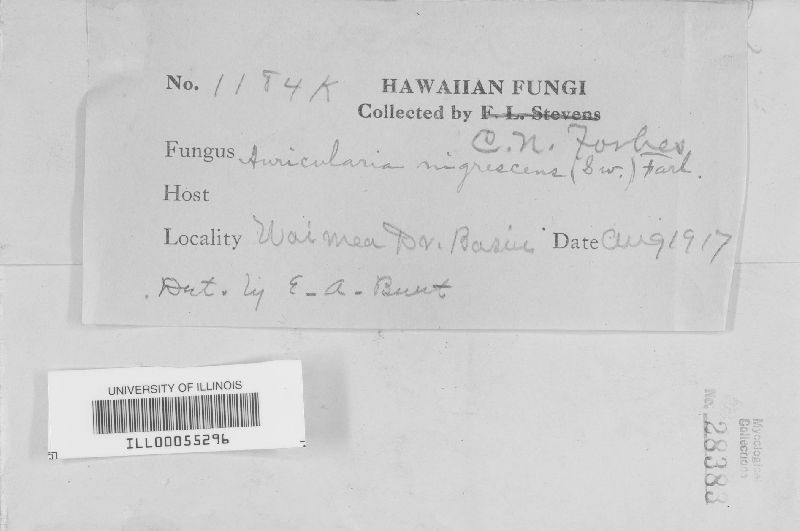 No. 1184K HAWAIIAN FUNGI
Collected by F. L. Stevens
C.N. Forbes
Fungus Auricularia nigrescens (Sw.) Farl.
Host
Locality Waimea Dr. Basin Date Aug 1917
Det. by E. A. Burt
UNIVERSITY OF ILLINOIS
ILL00055296
Mycological
Collections
No. 28383